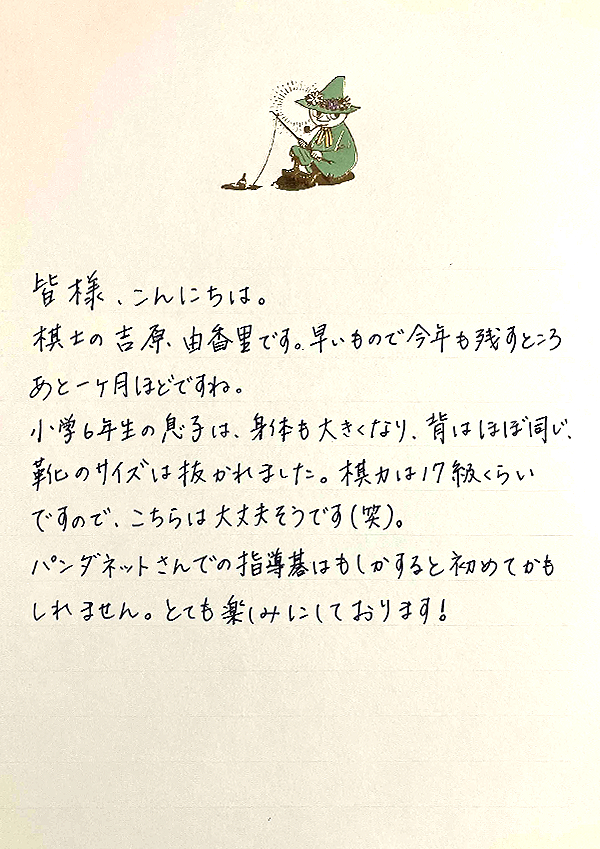 皆様、こんにちは。
棋士の吉原由香里です。早いもので今年も残すところ
あと一ヶ月ほどですね。
小学6年生の息子は、身体も大きくなり、背はほぼ同じ、
靴のサイズは抜かれました。棋力は17級くらい
ですので、こちらは大丈夫そうです(笑)。
パンダネットさんでの指導碁はもしかすると初めてかも
しれません。とても楽しみにしております!